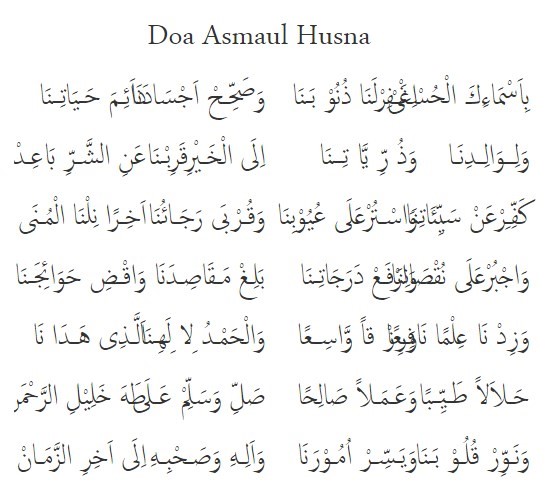 Doa Asmaul Husna
بِاَسْمَاءِكَ الْحُسْنٰى اغْفِرْلَنَا ذُنُوْ بَنَا وَصَحِّحْ اَجْسَادَنَا دَائِمَ حَيَاتِـنَا
وَلِـوَالِـدِنَـا وَذُ رِّ يَّا تِـنَا اِلَى الْخَـيْرِقَرِبْـنَا عَنِ الشَّـرِّ بَاعِـدْ
كَفِّرْعَنْ سَيِّئَاتِنَا وَاسْـتُرْعَلَى عُيُوْبِنَا وَقُرْبَى رَجَـائُنَا اَخِـرًا نِلْنَا الْمُنَى
وَاجْبُرْعَلَى نُقْصَانِنَا وَارْفَعْ دَرَجَاتِـنَا بَلِغْ مَـقَاصِـدَنَا وَاقْـضِ حَوَائِجَـنَا
وَزِدْ نَا عِلْمًا نَافِعًا وَرِزْ قاً وَّاسِـعًا وَالْحَمْـدُ لِا لٰهِـنَا الَّـذِى هَـدَا نَا
حَـلَالاً طَـيِّـبًا وَعَمَـلاً صَالِحًا صَلِّ وَسَلِّمْ عَـلَى طٰهَ خَلِيْلِ الرَّحْمَن
وَنَـوِّرْ قُلُـوْ بَـنَا وَيَسِّـرْ اُمُـوْرَنَا وَاَلِـهِ وَصَـحْبِـهِ اِلَى اَخِرِ الزَّمَـانْ